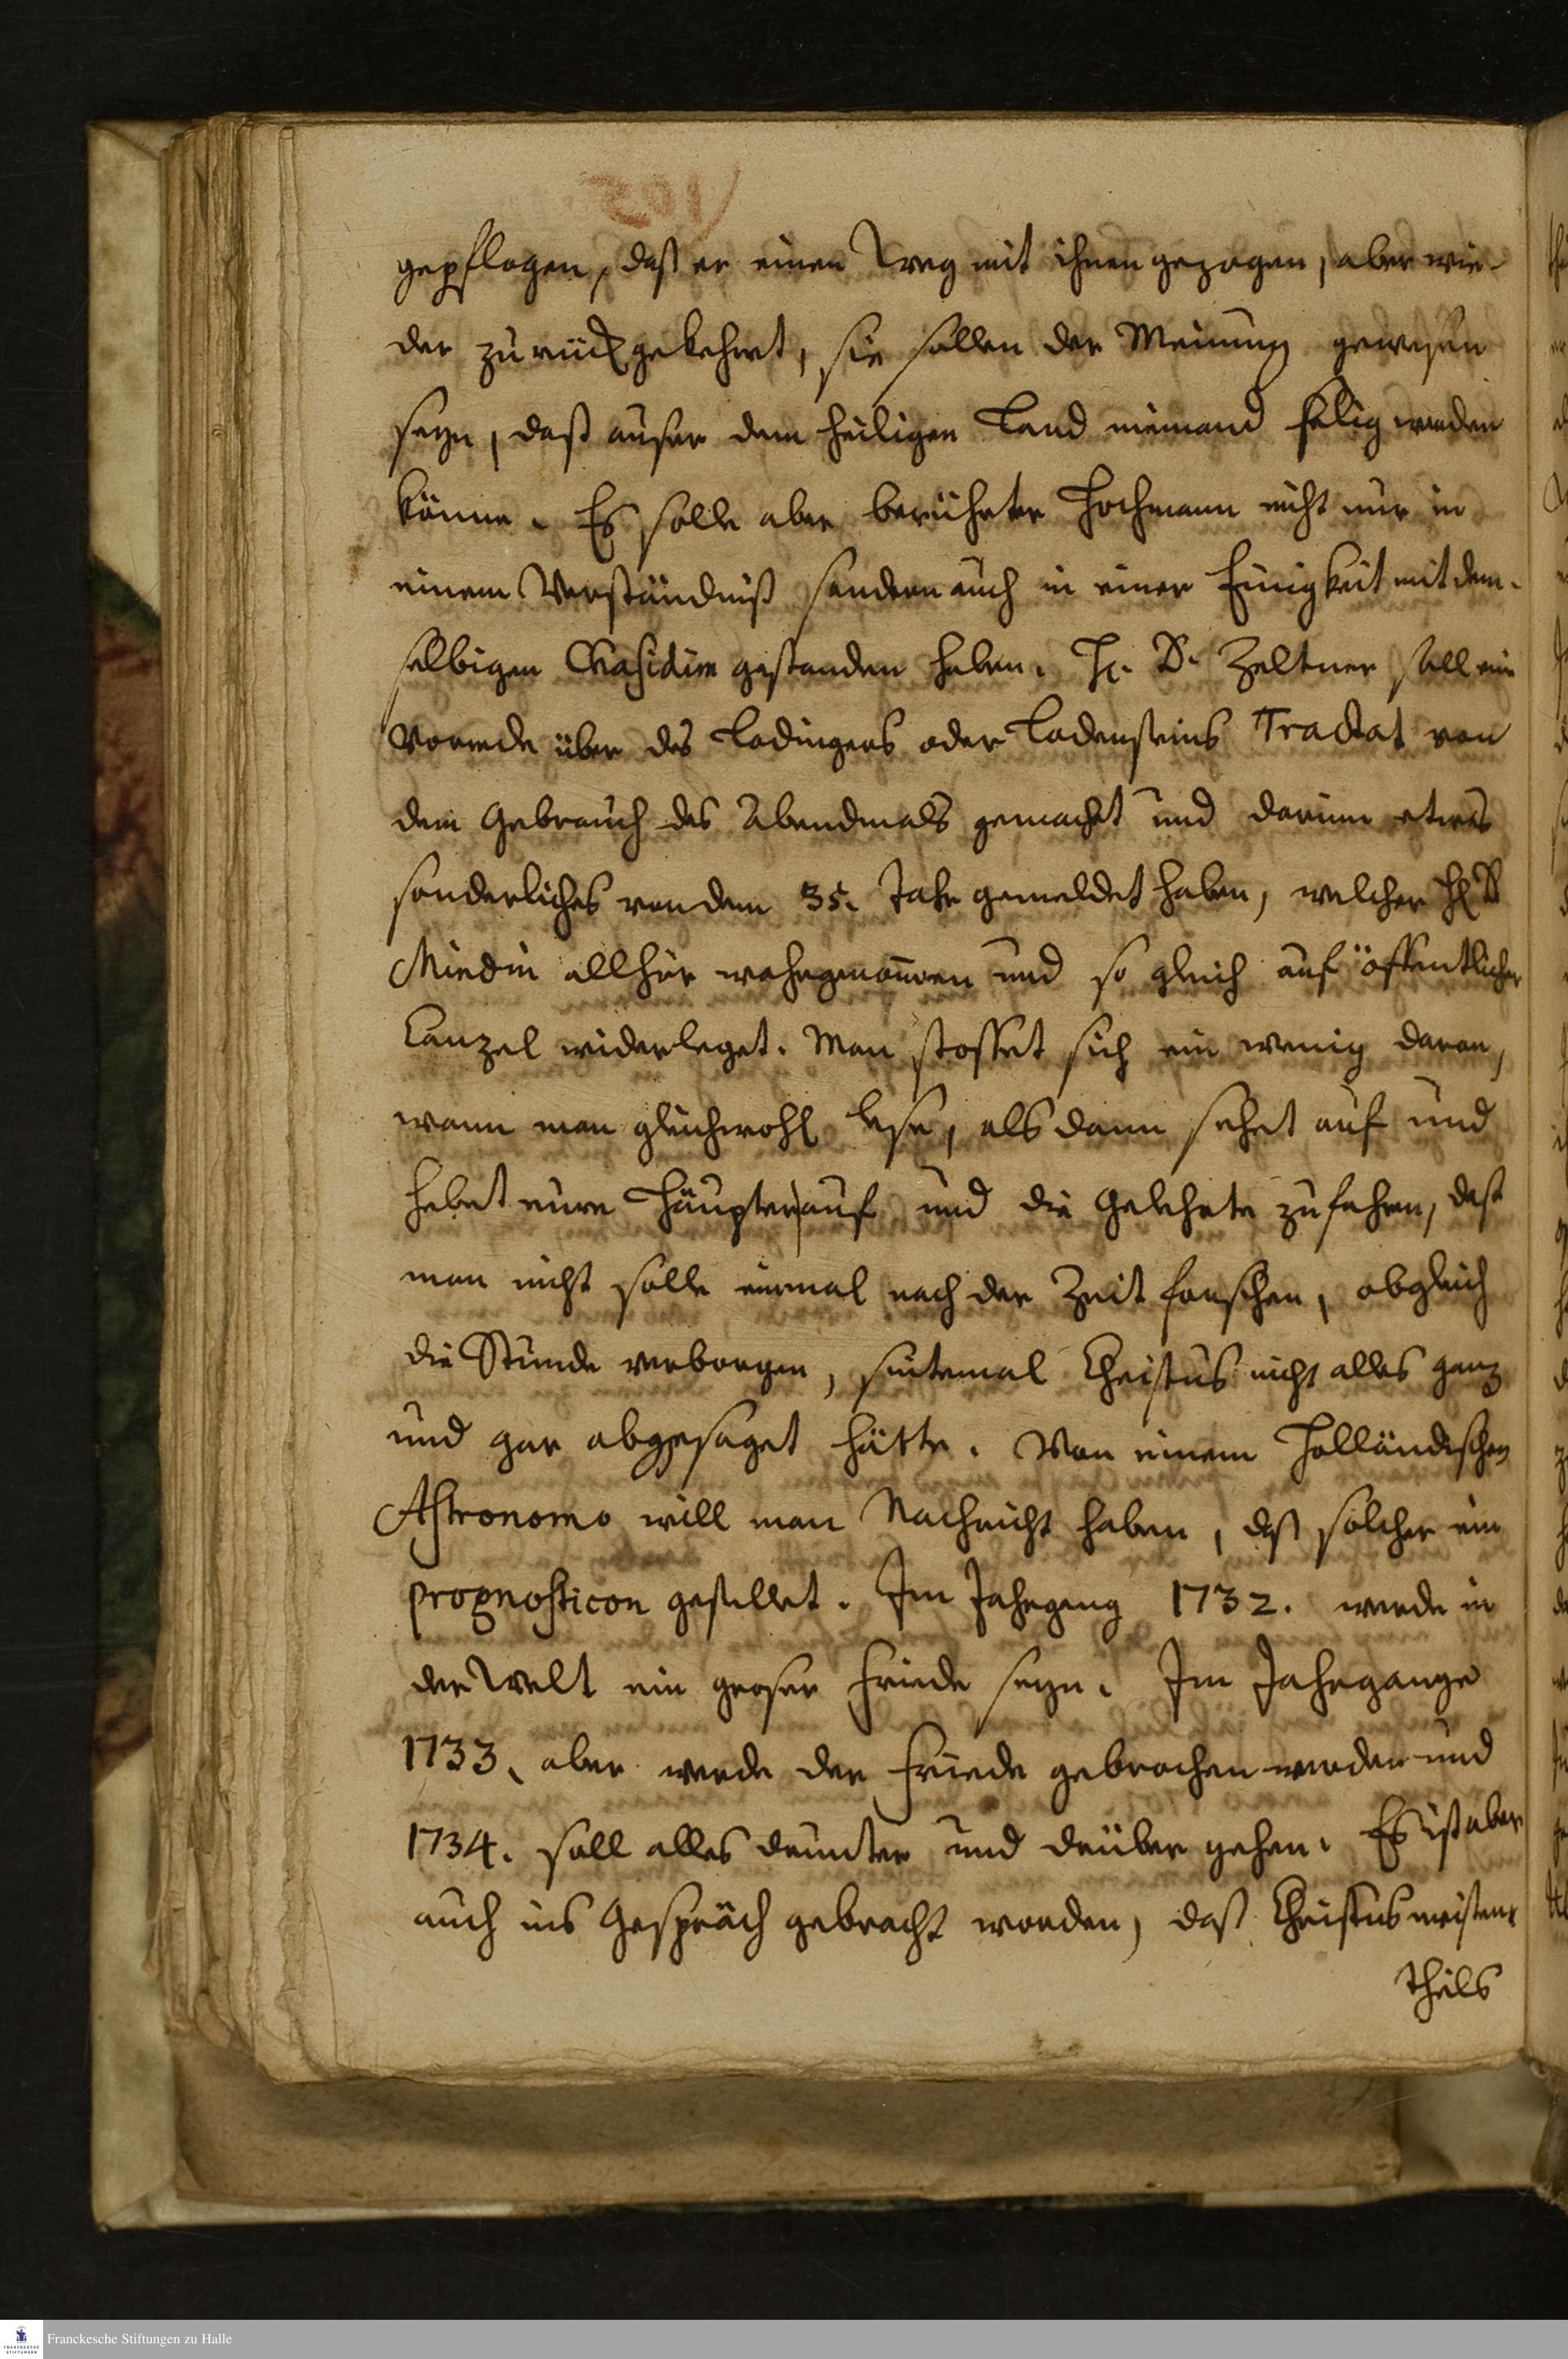 gepflogen, daß er einen Weg mit ihnen gezogen, aber wie-
der zurück gekehrt, sie sollen der Meinung gewesen
seyn, daß auser dem heiligen Land niemand selig werden
könne. Es solle aber berührter Hochmann nicht nur in
einem Verständniß sondern auch in einer Einigkeit mit dem-
selbigen Chasidim gestanden haben. H. D. Zeltner soll ein
Vorrede über des Lodingers oder Lodensteins Tractat von
dem Gebrauch des Abendmals gemacht und darinn etwas
sonderliches von dem 35. Jahr gemeldet haben, welcher H D
Miedin allhier wahrgenommen und so gleich auf öffentlicher
Canzel widerleget. Man stosset sich ein wenig daran,
wann man gleichwohl lese, als dann sehet auf und
hebet eure Häupter auf und die Gelehrte zufahren, daß
man nicht solle einmal nach der Zeit forschen, obgleich
die Stunde verborgen, sintemal Christus nicht alles ganz
und gar abgesaget hätte. Von einem Holländischen
Astronomo will man Nachricht haben, daß solcher ein
prognosticon gestellet. Im Jahrgang 1732. werde in
der Welt ein groser Friede seyn. Im Jahrgange
1733. aber werde der Friede gebrochen werden und
1734. soll alles drunter und drüber gehen. Es ist aber
auch ins Gespräch gebracht worden, daß Christus meistens
theils
Franckesche Stiftungen zu Halle